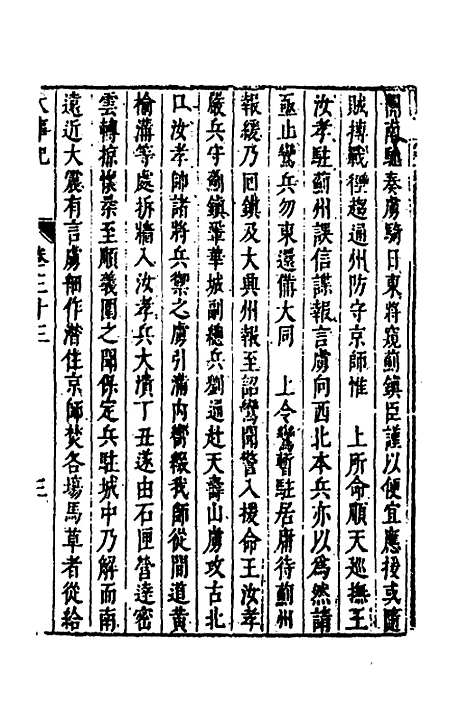 關南馳奏虜騎日東將窺薊鎮臣謹以便宜應援或隨
賊搏戰徑趨通州防守京師惟　上所命順天巡撫王
汝孝駐薊州誤信諜報言虜向西北本兵亦以為然請
亟止鸞兵勿東還備大同　上令鸞暫駐居庸待薊州
報緩乃回鎮及大興州報至詔鸞聞警入援命王汝孝
嚴兵守薊鎮鞏華城副總兵劉通赴天壽山虜攻古北
口汝孝帥諸將兵禦之虜引滿內嚮綴我師從間道黃
榆溝等處拆牆入汝孝兵大潰丁丑遂由石匣營達密
雲轉掠懷柔至順義圍之聞保定兵駐城中乃解而南
遠近大震有言虜細作潛住京師焚各場馬草者從給
大事記　卷三十三　三